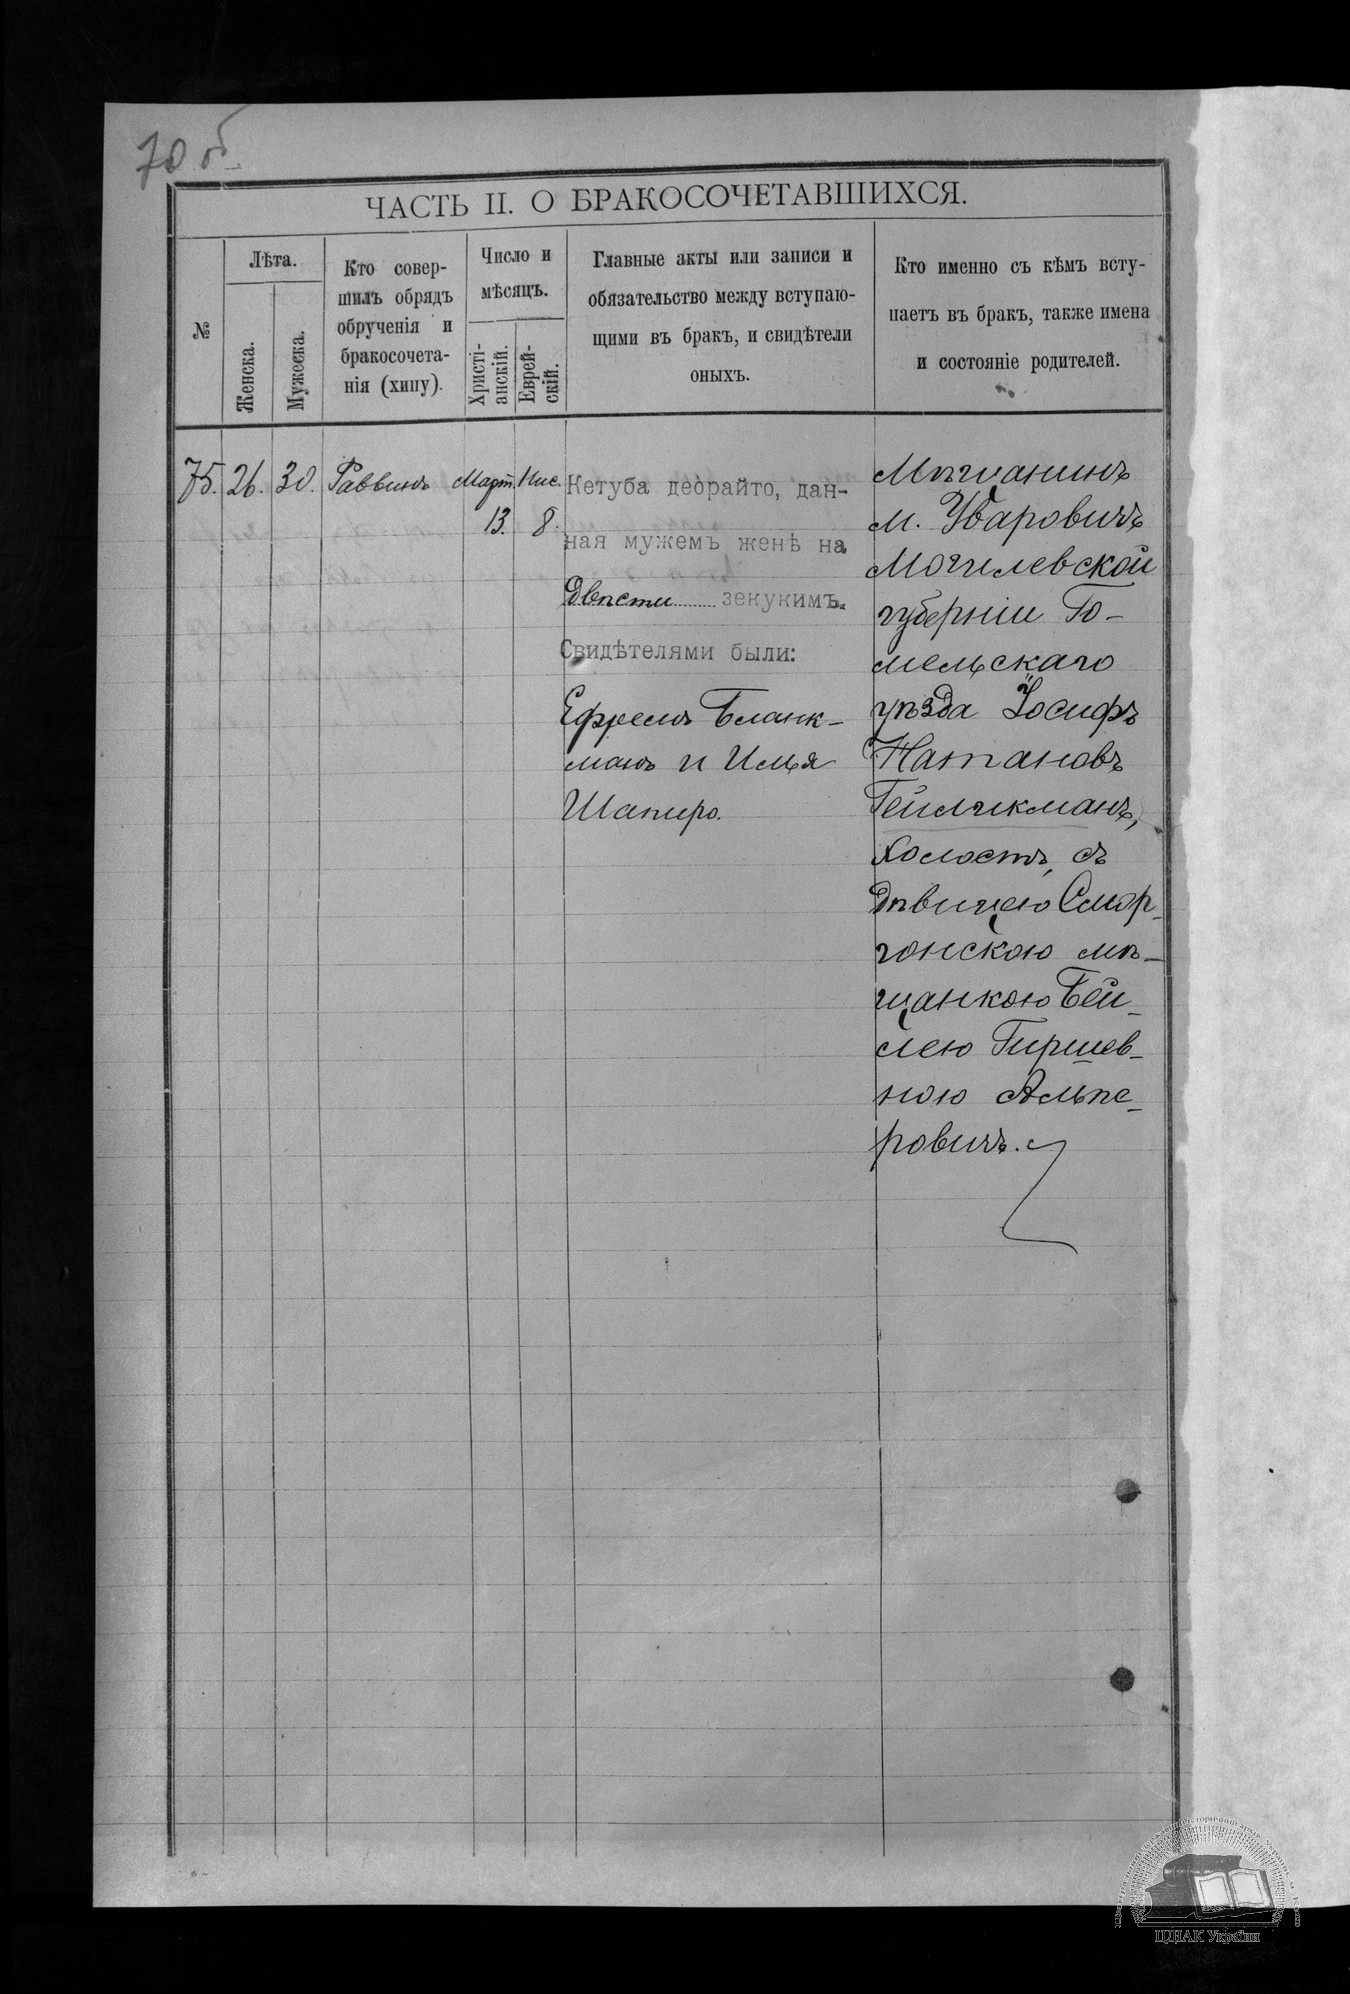 70 об
ЧАСТЬ II. О БРАКОСОЧЕТАВШИХСЯ.
№
Лѣта.
Женска.
Мужеска.
Кто совер-
шилъ обрядъ
обрученія и
бракосочета-
нія (хипу).
Число и
мѣсяцъ.
Христі-
анскій.
Еврей-
скій.
Главные акты или записи и
обязательство между вступаю-
щими въ бракъ, и свидѣтели
оныхъ.
Кто именно съ кѣмъ всту-
паетъ въ бракъ, также имена
и состояніе родителей.
75. 26. 30. Раввинъ Март. Нис.
13. 8.
Кетуба деорайто, дан-
ная мужемъ женѣ на
двѣсти зекукимъ.
Свидѣтелями были:
Ефремъ Бланк-
манъ и Илья
Шапиро.
Мѣщанинъ
м. Уваровичъ
Могилевской
губерніи Го-
мельскаго
уѣзда Іосифъ
Натановъ
Гейликманъ,
холостъ, съ
дѣвицею Смор-
гонскою мѣ-
щанкою Бей-
лею Гиршев-
ною Альпе-
ровичъ.
ЦДІАК України